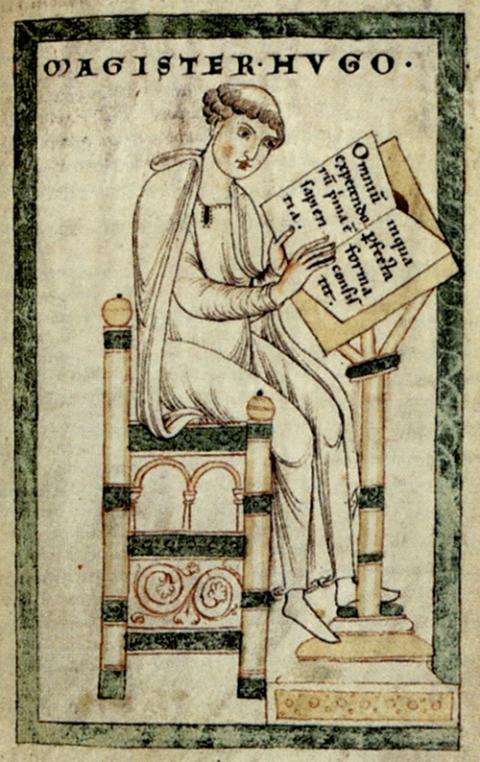 MAGISTER·HVGO·
Omniū
expetendo
rū p'ma ē
sapien
tia;
in qua
pfecta
forma
consis
tit.